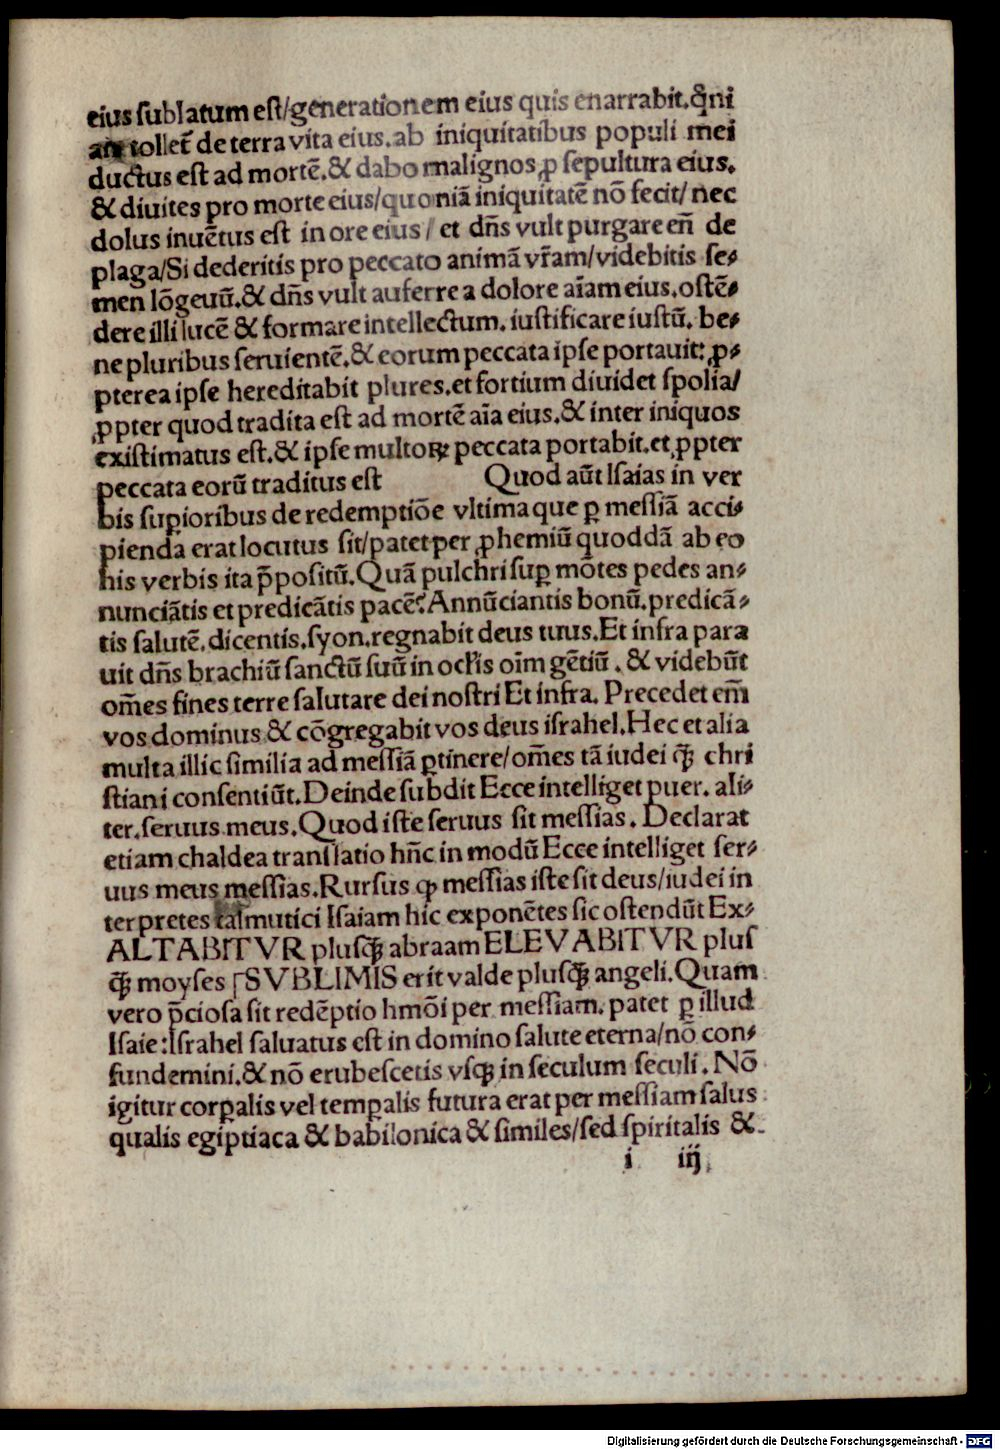 eius ſublatum eſt/generationem eius quis enarrabit.qm̄i
am tollet᷑ de terra vita eius.ab iniquitatibus populi mei
ductus eſt ad mortē.& dabo malignos ꝓ ſepultura eius.
& diuites pro morte eius/quoniā iniquitatē nō fecit/ nec
dolus inuētus eſt in ore eius/ et dn̄s vult purgare eū de
plaga/Si dederitis pro peccato animā vr̄am/videbitis ſe⸗
men lōgeuū.& dn̄s vult auferre a dolore aīam eius.oſtē⸗
dere illi lucē & formare intellectum. iuſtificare iuſtū. be⸗
ne pluribus ſeruientē.& eorum peccata ipſe portauit: ꝓ⸗
pterea ipſe hereditabit plures.et fortium diuidet ſpolia/
ꝓpter quod tradita eſt ad mortē aīa eius.& inter iniquos
exiſtimatus eſt.& ipſe multoꝝ peccata portabit.et ꝓpter
peccata eorū traditus eſt Quod aūt Iſaias in ver
bis ſuꝑioribus de redemptiōe vltima que ꝑ meſſiā acci⸗
pienda erat locutus ſit/patet per ꝓhemiū quoddā ab eo
his verbis ita p̄poſitū.Quā pulchri ſuꝑ mōtes pedes an⸗
nunciātis et predicātis pacē?Annūciantis bonū.predicā⸗
tis ſalutē.dicentis.ſyon.regnabit deus tuus.Et infra para
uit dn̄s brachiū ſanctū ſuū in ocl̄is oīm gētiū . & videbūt
om̄es fines terre ſalutare dei noſtri Et infra. Precedet em̄
vos dominus & cōgregabit vos deus iſrahel.Hec et alia
multa illic ſimilia ad meſſiā ꝑtinere/om̄es tā iudei qꝫ̄ chri
ſtiani conſentiūt.Deinde ſubdit Ecce intelliget puer. ali⸗
ter.ſeruus meus.Quod iſte ſeruus ſit meſſias. Declarat
etiam chaldea tranſlatio hūc in modū Ecce intelliget ſer⸗
uus meus meſſias.Rurſus ꝙ meſſias iſte ſit deus/iudei in
terpretes talmutici Iſaiam hic exponētes ſic oſtendūt Ex⸗
ALTABITVR pluſqꝫ̄ abraam ELEVABITVR pluſ
qꝫ̄ moyſes ſSVBLIMIS erit valde pluſqꝫ̄ angeli.Quam
vero p̄cioſa ſit redēptio hmōi per meſſiam. patet ꝑ illud
Iſaie:Iſrahel ſaluatus eſt in domino ſalute eterna/nō con⸗
fundemini.& nō erubeſcetis vſqꝫ in ſeculum ſeculi. Nō
igitur corꝑalis vel temꝑalis futura erat per meſſiam ſalus
qualis egiptiaca & babilonica & ſimiles/ſed ſpiritalis &
i iij
Digitalisierung gefördert durch die Deutsche Forschungsgemeinschaft - DFG